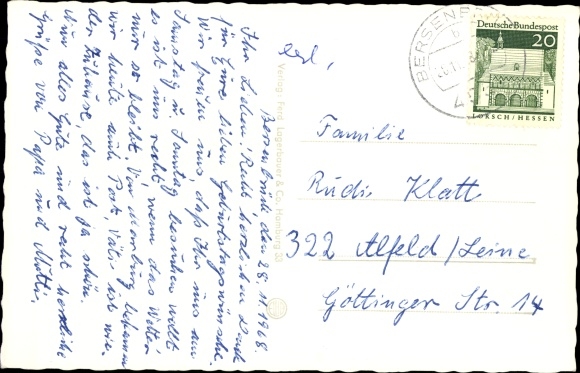 Bersenbrück den 28.11.1968.
Ihr Lieben! Recht herzlichen Dank
für Eure lieben Geburtstagswünsche.
Wir freuen uns, daß Ihr uns am
Samstag u. Sonntag besuchen wollt
es ist uns recht, wenn das Wetter
nur so bleibt. Von bekamen
wir heute auch Post, Vati ist wie-
der Zuhause, das ist ja schön.
Nun alles Gute und recht herzliche
Grüße von Papa und Mutti.
Verlag: Ferd. Lagerbauer & Co., Hamburg 33
BERSENB
Deutsche Bundespost
20
LORSCH/HESSEN
Familie
Rudi Klatt
322 Alfeld/Leine
Göttinger Str. 14